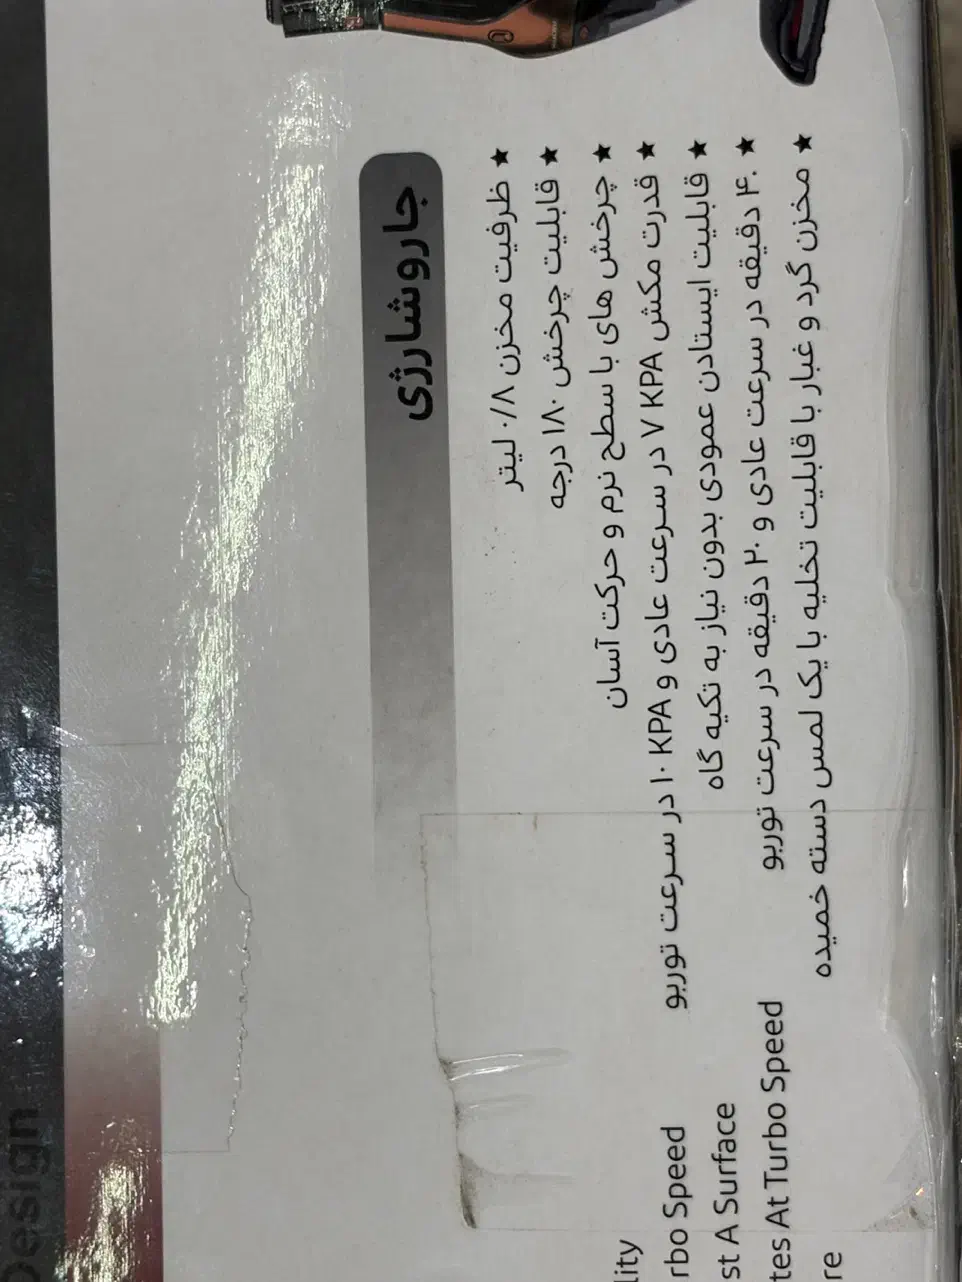 جاروشارژی
★ ظرفیت مخزن ۰/۸ لیتر
★ قابلیت چرخش ۱۸۰ درجه
★ چرخش های با سطح نرم و حرکت آسان
★ قدرت مکش ۷ KPA در سرعت عادی و ۱۰ KPA در سرعت توربو
★ قابلیت ایستادن عمودی بدون نیاز به تکیه گاه
★ ۴۰ دقیقه در سرعت عادی و ۲۰ دقیقه در سرعت توربو
★ مخزن گرد و غبار با قابلیت تخلیه با یک لمس دسته خمیده
Design
lity
rbo Speed
st A Surface
tes At Turbo Speed
re